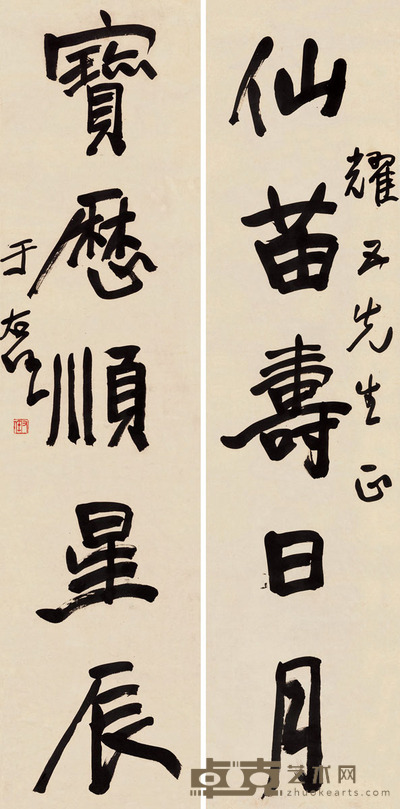 仙苗壽日月
耀五先生正
寶歷順星辰
于右任
卓克艺术网
zhuokearts.com